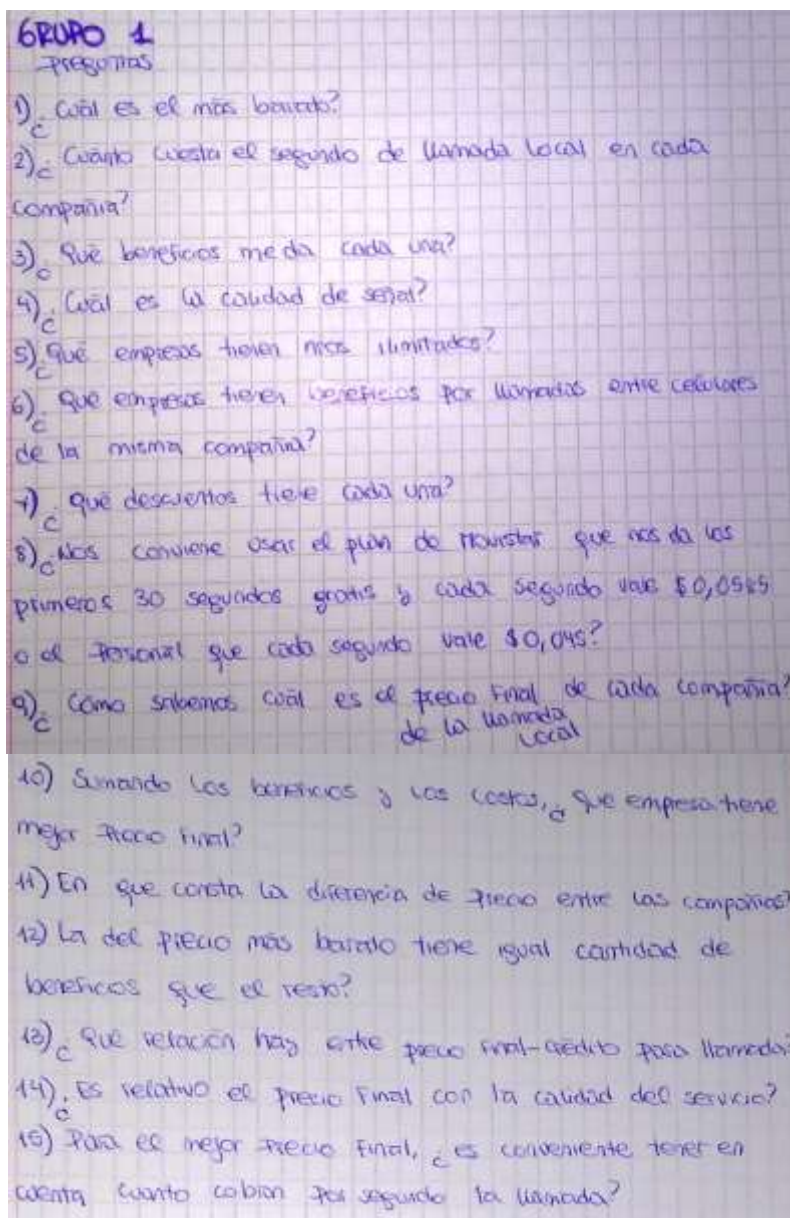 GRUPO 1
Preguntas
1) ¿Cuál es el más barato?
2) ¿Cuánto cuesta el segundo de llamada local en cada
compañia?
3) ¿Qué beneficios me da cada una?
4) ¿Cuál es la calidad de señal?
5) ¿Qué empresas tienen ilimitados?
6) ¿Que empresas tienen beneficios por llamadas entre celulares
de la misma compañia?
7) ¿Qué descuentos tiene cada una?
8) ¿Nos conviene usar el plan de Movistar que nos da los
primeros 30 segundos gratis y cada segundo vale $0,0585
o el Personal que cada segundo vale $0,045?
9) ¿Cómo sabemos cuál es el precio final de cada compañia?
de la llamada
local
10) Sumando los beneficios y los costos, ¿que empresa tiene
mejor Precio Final?
11) En que consta la diferencia de precio entre las compañias?
12) La del precio más barato tiene igual cantidad de
beneficios que el resto?
13) ¿Qué relación hay entre precio final-crédito para llamada?
14) ¿Es relativo el precio Final con la calidad del servicio?
15) Para el mejor Precio Final, ¿es conveniente tener en
cuenta cuanto cobran por segundo la llamada?